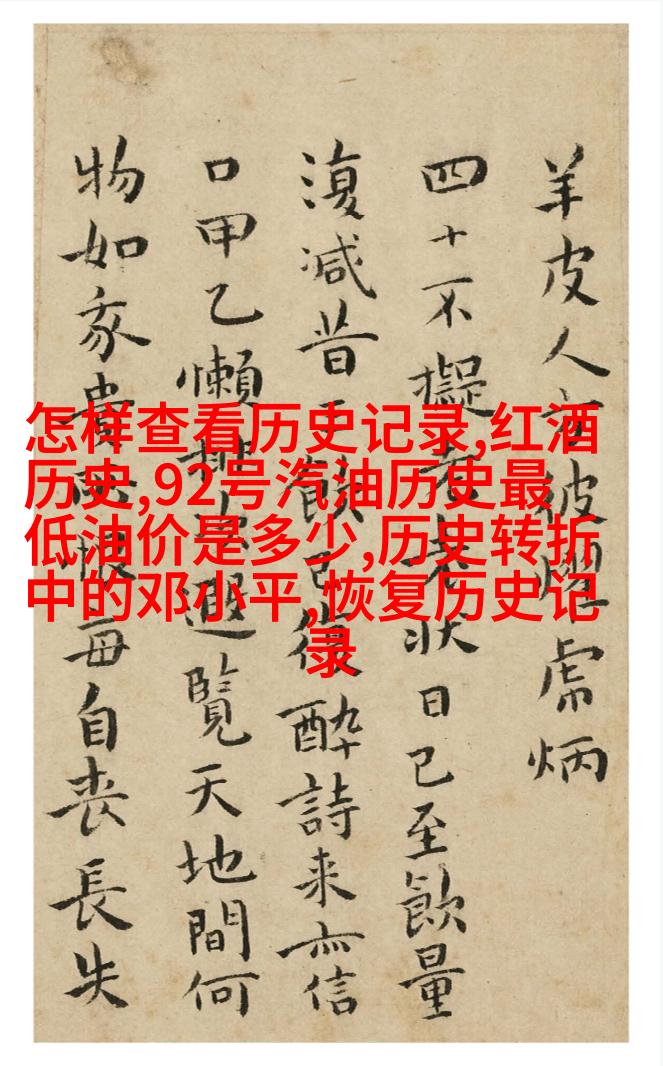 怎样查看历史记录,红酒
历史,92号汽油历史最
低油价是多少,历史转折
中的邓小平,恢复历史记
录
羊皮人彼虎炳
四十不擬老狀日已至飲量
復減昔已復醉詩来亦信
口甲乙懶遐覽天地間何
物如豕貴每自喪長失